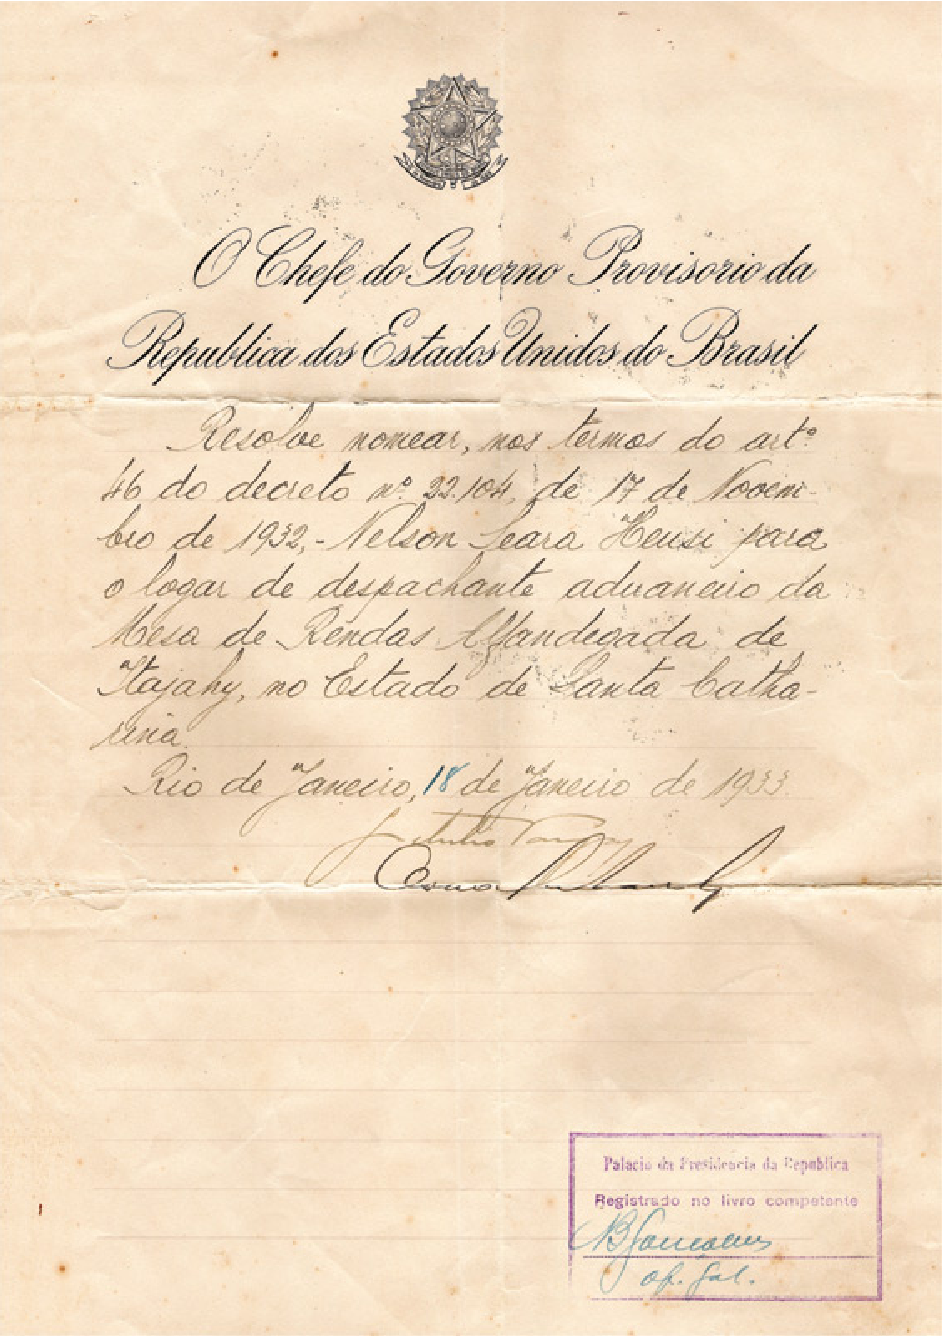 O Chefe do Governo Provisorio da
Republica dos Estados Unidos do Brasil
Resolve nomear, nos termos do artº
46 do decreto nº 22.104, de 17 de Novem-
bro de 1932, - Nelson Seara Heusi para
o logar de despachante aduaneiro da
Mesa de Rendas Alfandegada de
Itajahy, no Estado de Santa Catha-
rina
Rio de Janeiro, 18 de Janeiro de 1933.
Getulio Vargas
Palacio da Presidencia da Republica
Registrado no livro competente
of. gal.